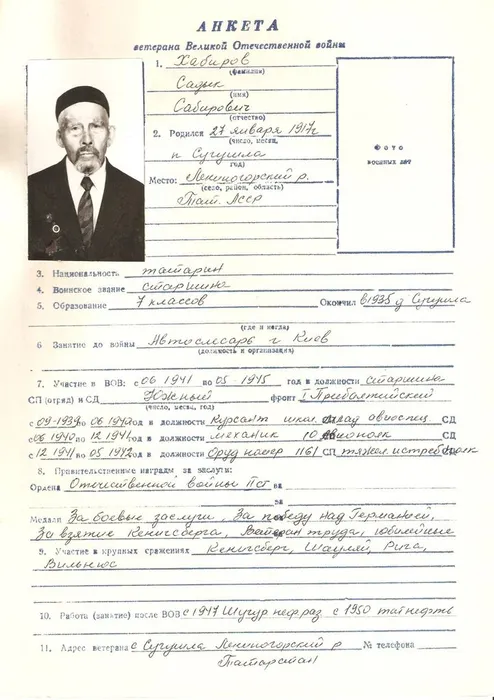 АНКЕТА
ветерана Великой Отечественной войны
1. Хабиров
(фамилия)
Садык
(имя)
Сабирович
(отчество)
2. Родился 27 января 1917г
(число, месяц,
год)
п Сугушла
Место: Лениногорский р.
(село, район, область)
Тат. АССР
Фото
военных лет
3. Национальность татарин
4. Воинское звание старшина
5. Образование 7 классов Окончил в 1935 д Сугушла
(где и когда)
6 Занятие до войны Автослесарь г Киев
(должность и организация)
7. Участие в ВОВ: с 06 1941 по 05-1945 год в должности старшина
СП (отряд) и СД Южный фронт I Прибалтийский
(число, месяц, год)
с 09-1939 по 06 1940 год в должности Курсант школ млад авиоспец СД
с 06 1940 по 12 1941 год в должности механик 10 авиополк СД
с 12 1941 по 05 1942 год в должности Оруд номер 1161 СП тяжел. истреб полк
8. Правительственные награды за заслуги:
Ордена Отечественной войны II ст за
за
Медали За боевые заслуги, За победу над Германией,
За взятие Кенигсберга, Ветеран труда, юбилейные
9. Участие в крупных сражениях Кенигсберг, Шауляй, Рига,
Вильнюс
10. Работа (занятие) после ВОВ с 1947 Шугур нефраз с 1950 татнефть
11. Адрес ветерана с Сугушла Лениногорский р № телефона
Татарстан